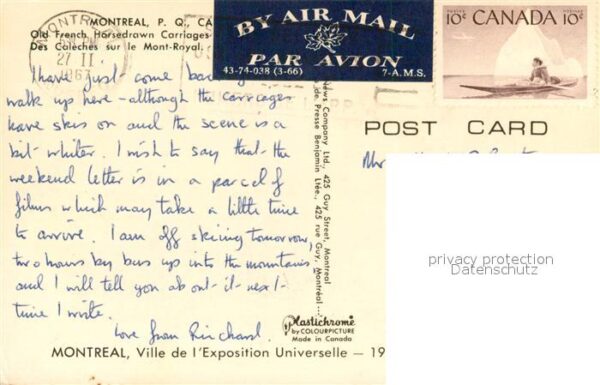 MONTREAL, P. Q., CA
Old French Horsedrawn Carriages
Des Calèches sur le Mont-Royal.
MONTREAL
27 II
1967
BY AIR MAIL
PAR AVION
43-74-038 (3-66) 7-A.M.S.
POSTES POSTAGE
10¢ CANADA 10¢
I have just come bac
walk up here - although the carriages
have skis on and the scene is a
bit whiter. I wish to say that the
weekend letter is in a parcel of
films which may take a little time
to arrive. I am off skiing tomorrow,
two hours by bus up into the mountains
and I will tell you about it next
time I write.
Love from Richard.
News Company Ltd., 425 Guy Street, Montreal
de Presse Benjamin Ltée., 425 rue Guy, Montreal
POST CARD
privacy protection
Datenschutz
Plastichrome
by COLOURPICTURE
Made in Canada
MONTREAL, Ville de l'Exposition Universelle — 19